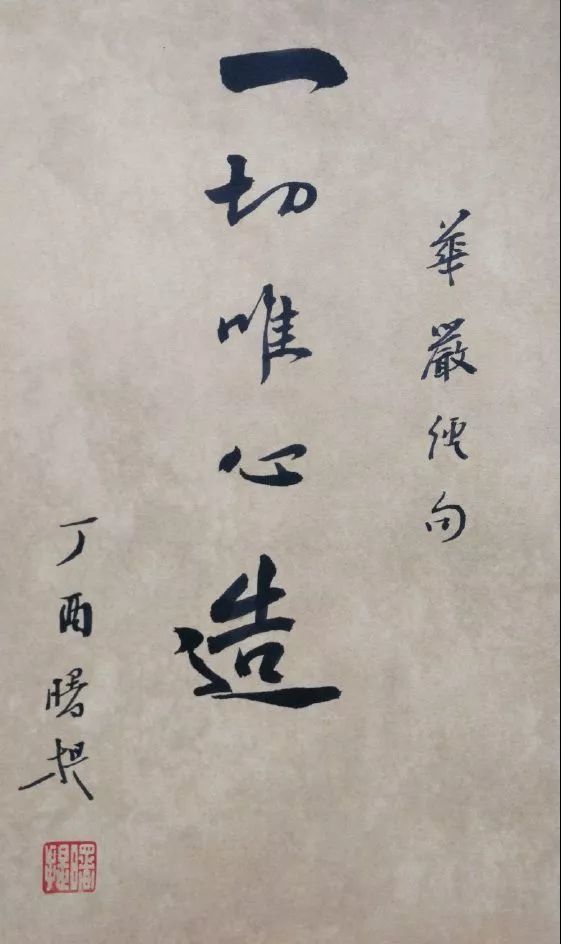 華嚴經句
一切唯心造
丁酉曙提
曙提